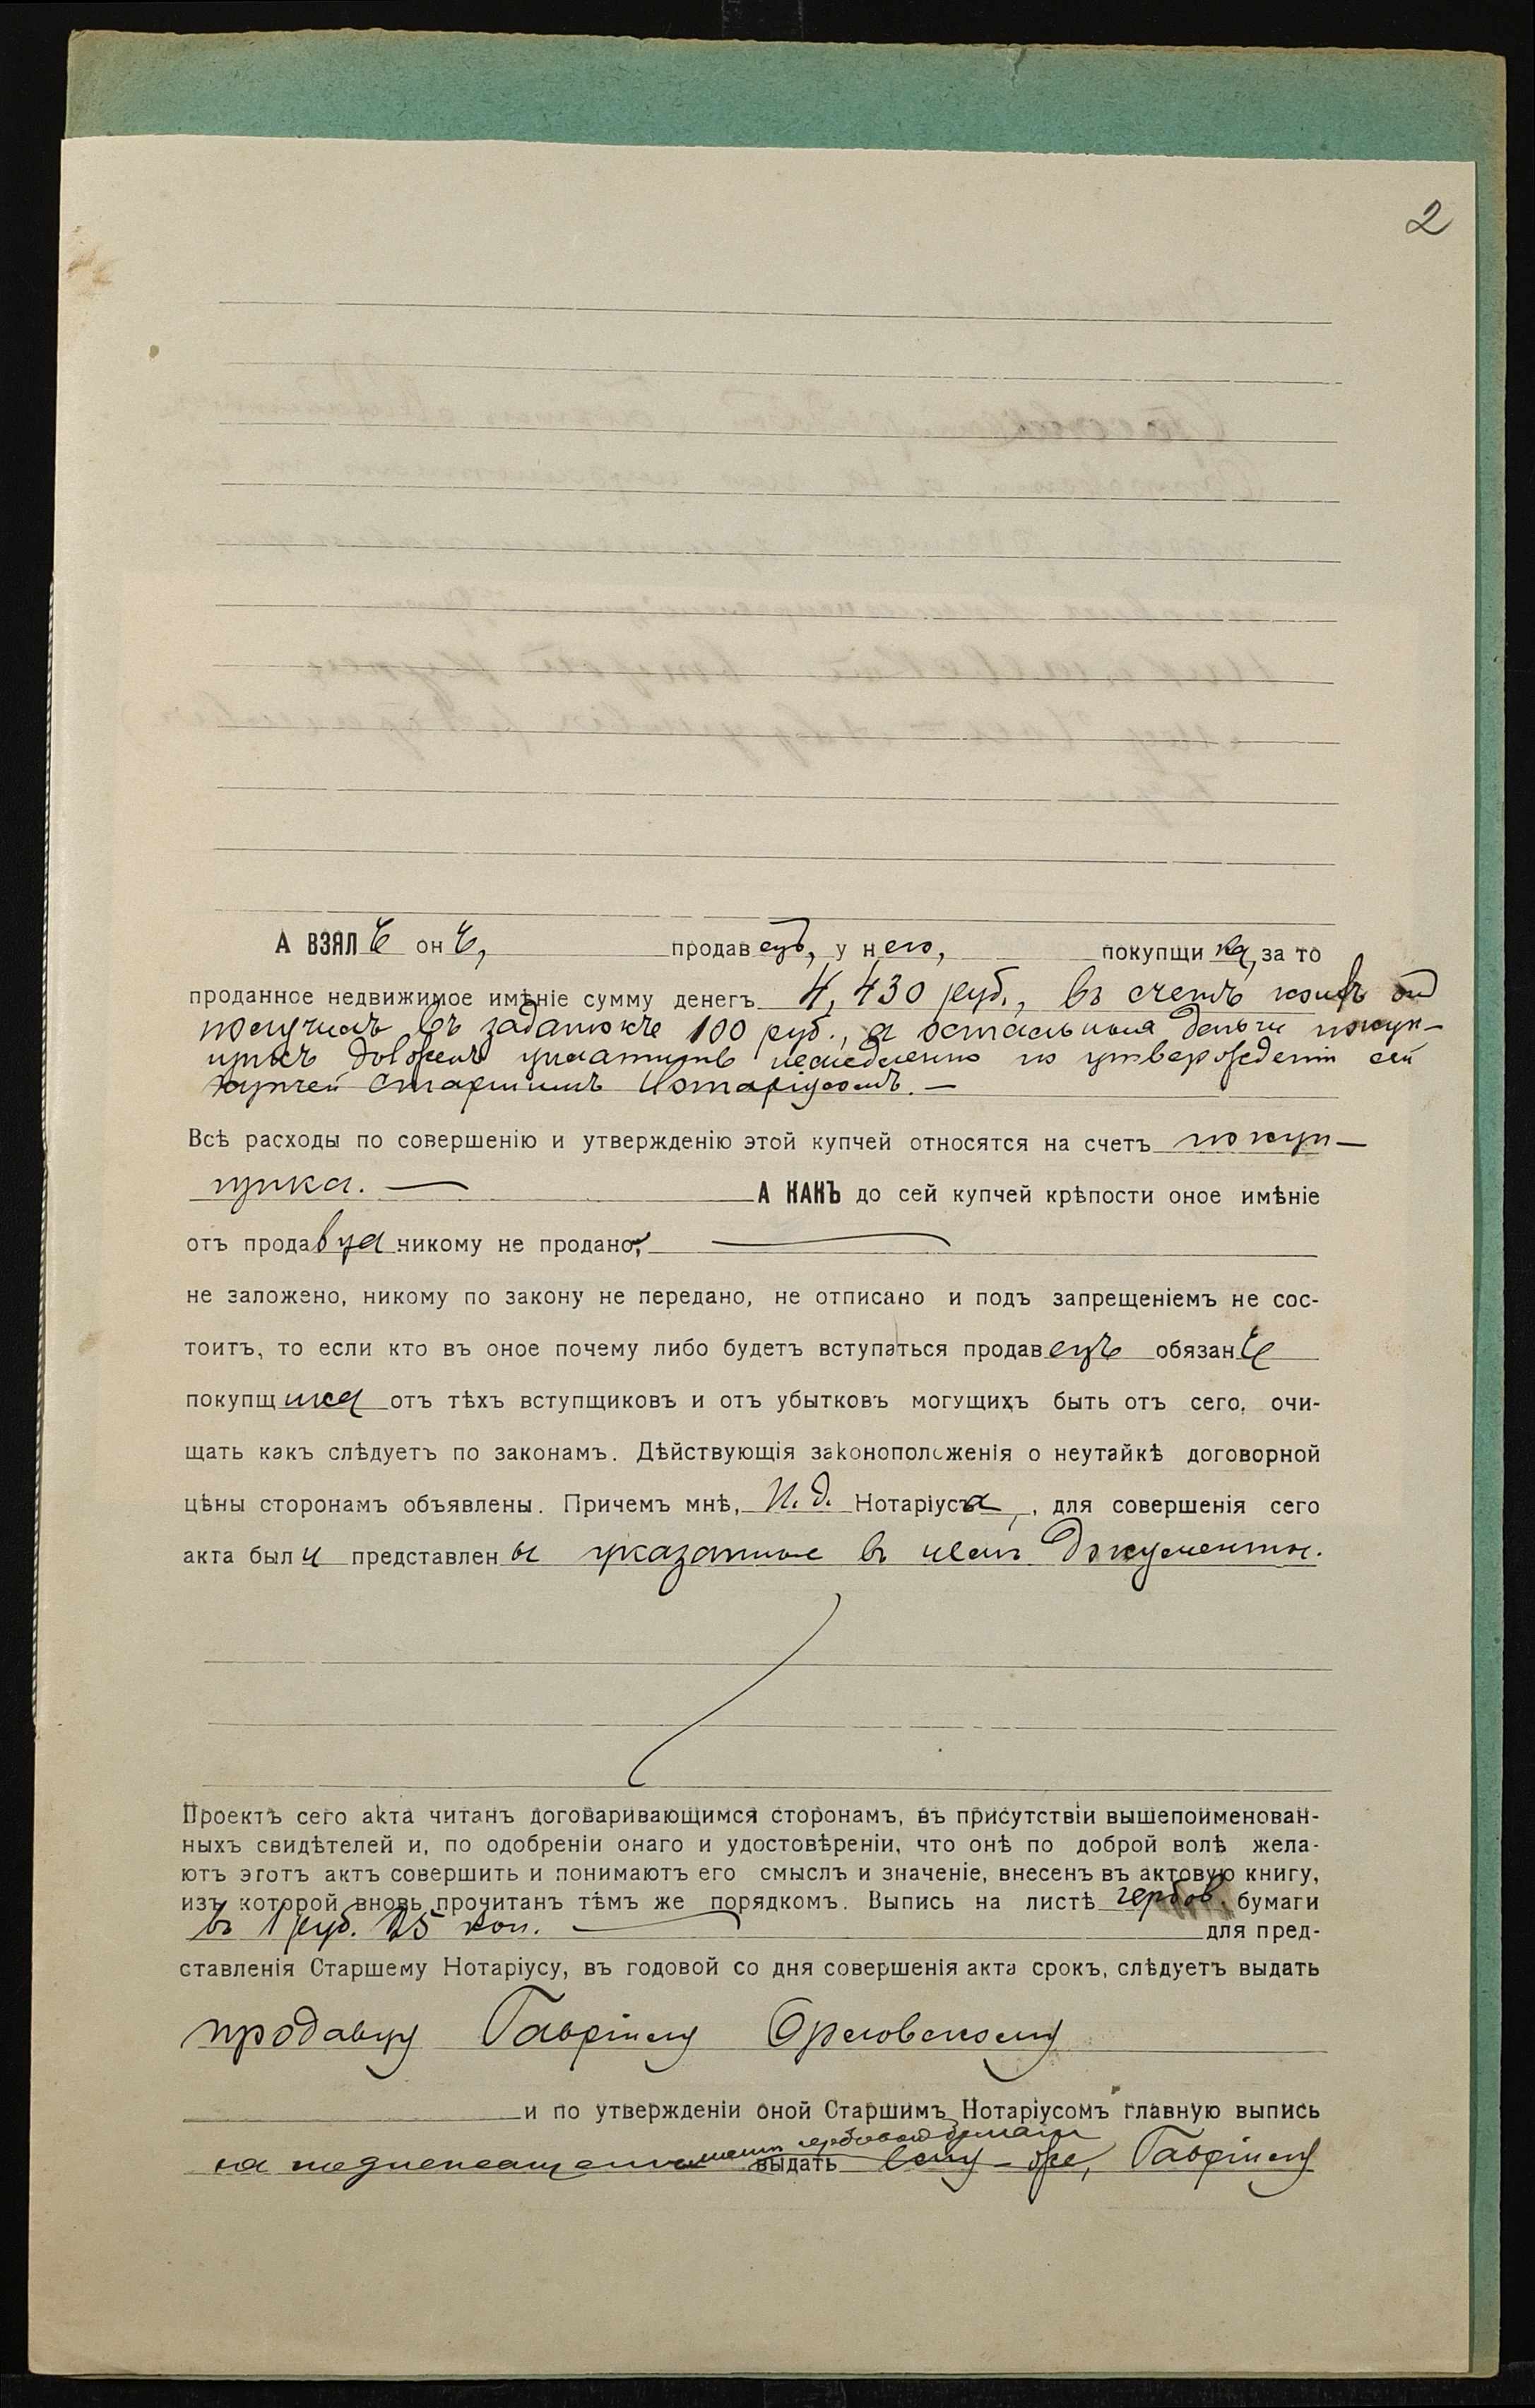 2
А ВЗЯЛЪ онъ, продавецъ, у него, покупщика, за то
проданное недвижимое имѣніе сумму денегъ 4,430 руб., въ счетъ коихъ онъ
получилъ въ задатокъ 100 руб., а остальныя деньги покуп-
щикъ долженъ уплатить немедленно по утвержденіи сей
купчей Старшимъ Нотаріусомъ. —
Всѣ расходы по совершенію и утвержденію этой купчей относятся на счетъ покуп-
щика. — А КАКЪ до сей купчей крѣпости оное имѣніе
отъ продавца никому не продано,
не заложено, никому по закону не передано, не отписано и подъ запрещеніемъ не сос-
тоитъ, то если кто въ оное почему либо будетъ вступаться продавецъ обязанъ
покупщика отъ тѣхъ вступщиковъ и отъ убытковъ могущихъ быть отъ сего, очи-
щать какъ слѣдуетъ по законамъ. Дѣйствующія законоположенія о неутайкѣ договорной
цѣны сторонамъ объявлены. Причемъ мнѣ, И. д. Нотаріуса, для совершенія сего
акта были представлены указанные въ немъ документы.
Проектъ сего акта читанъ договаривающимся сторонамъ, въ присутствіи вышепоименован-
ныхъ свидѣтелей и, по одобреніи онаго и удостовѣреніи, что онѣ по доброй волѣ жела-
ютъ этотъ актъ совершить и понимаютъ его смыслъ и значеніе, внесенъ въ актовую книгу,
изъ которой вновь прочитанъ тѣмъ же порядкомъ. Выпись на листѣ гербов. бумаги
въ 1 руб. 25 коп. для пред-
ставленія Старшему Нотаріусу, въ годовой со дня совершенія акта срокъ, слѣдуетъ выдать
продавцу Гавріилу Орловскому
и по утвержденіи оной Старшимъ Нотаріусомъ главную выпись
гербовой бумаги
на выдать ему-же, Гавріилу